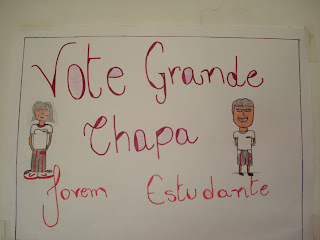 Vote Grande
Chapa
Jovem Estudante